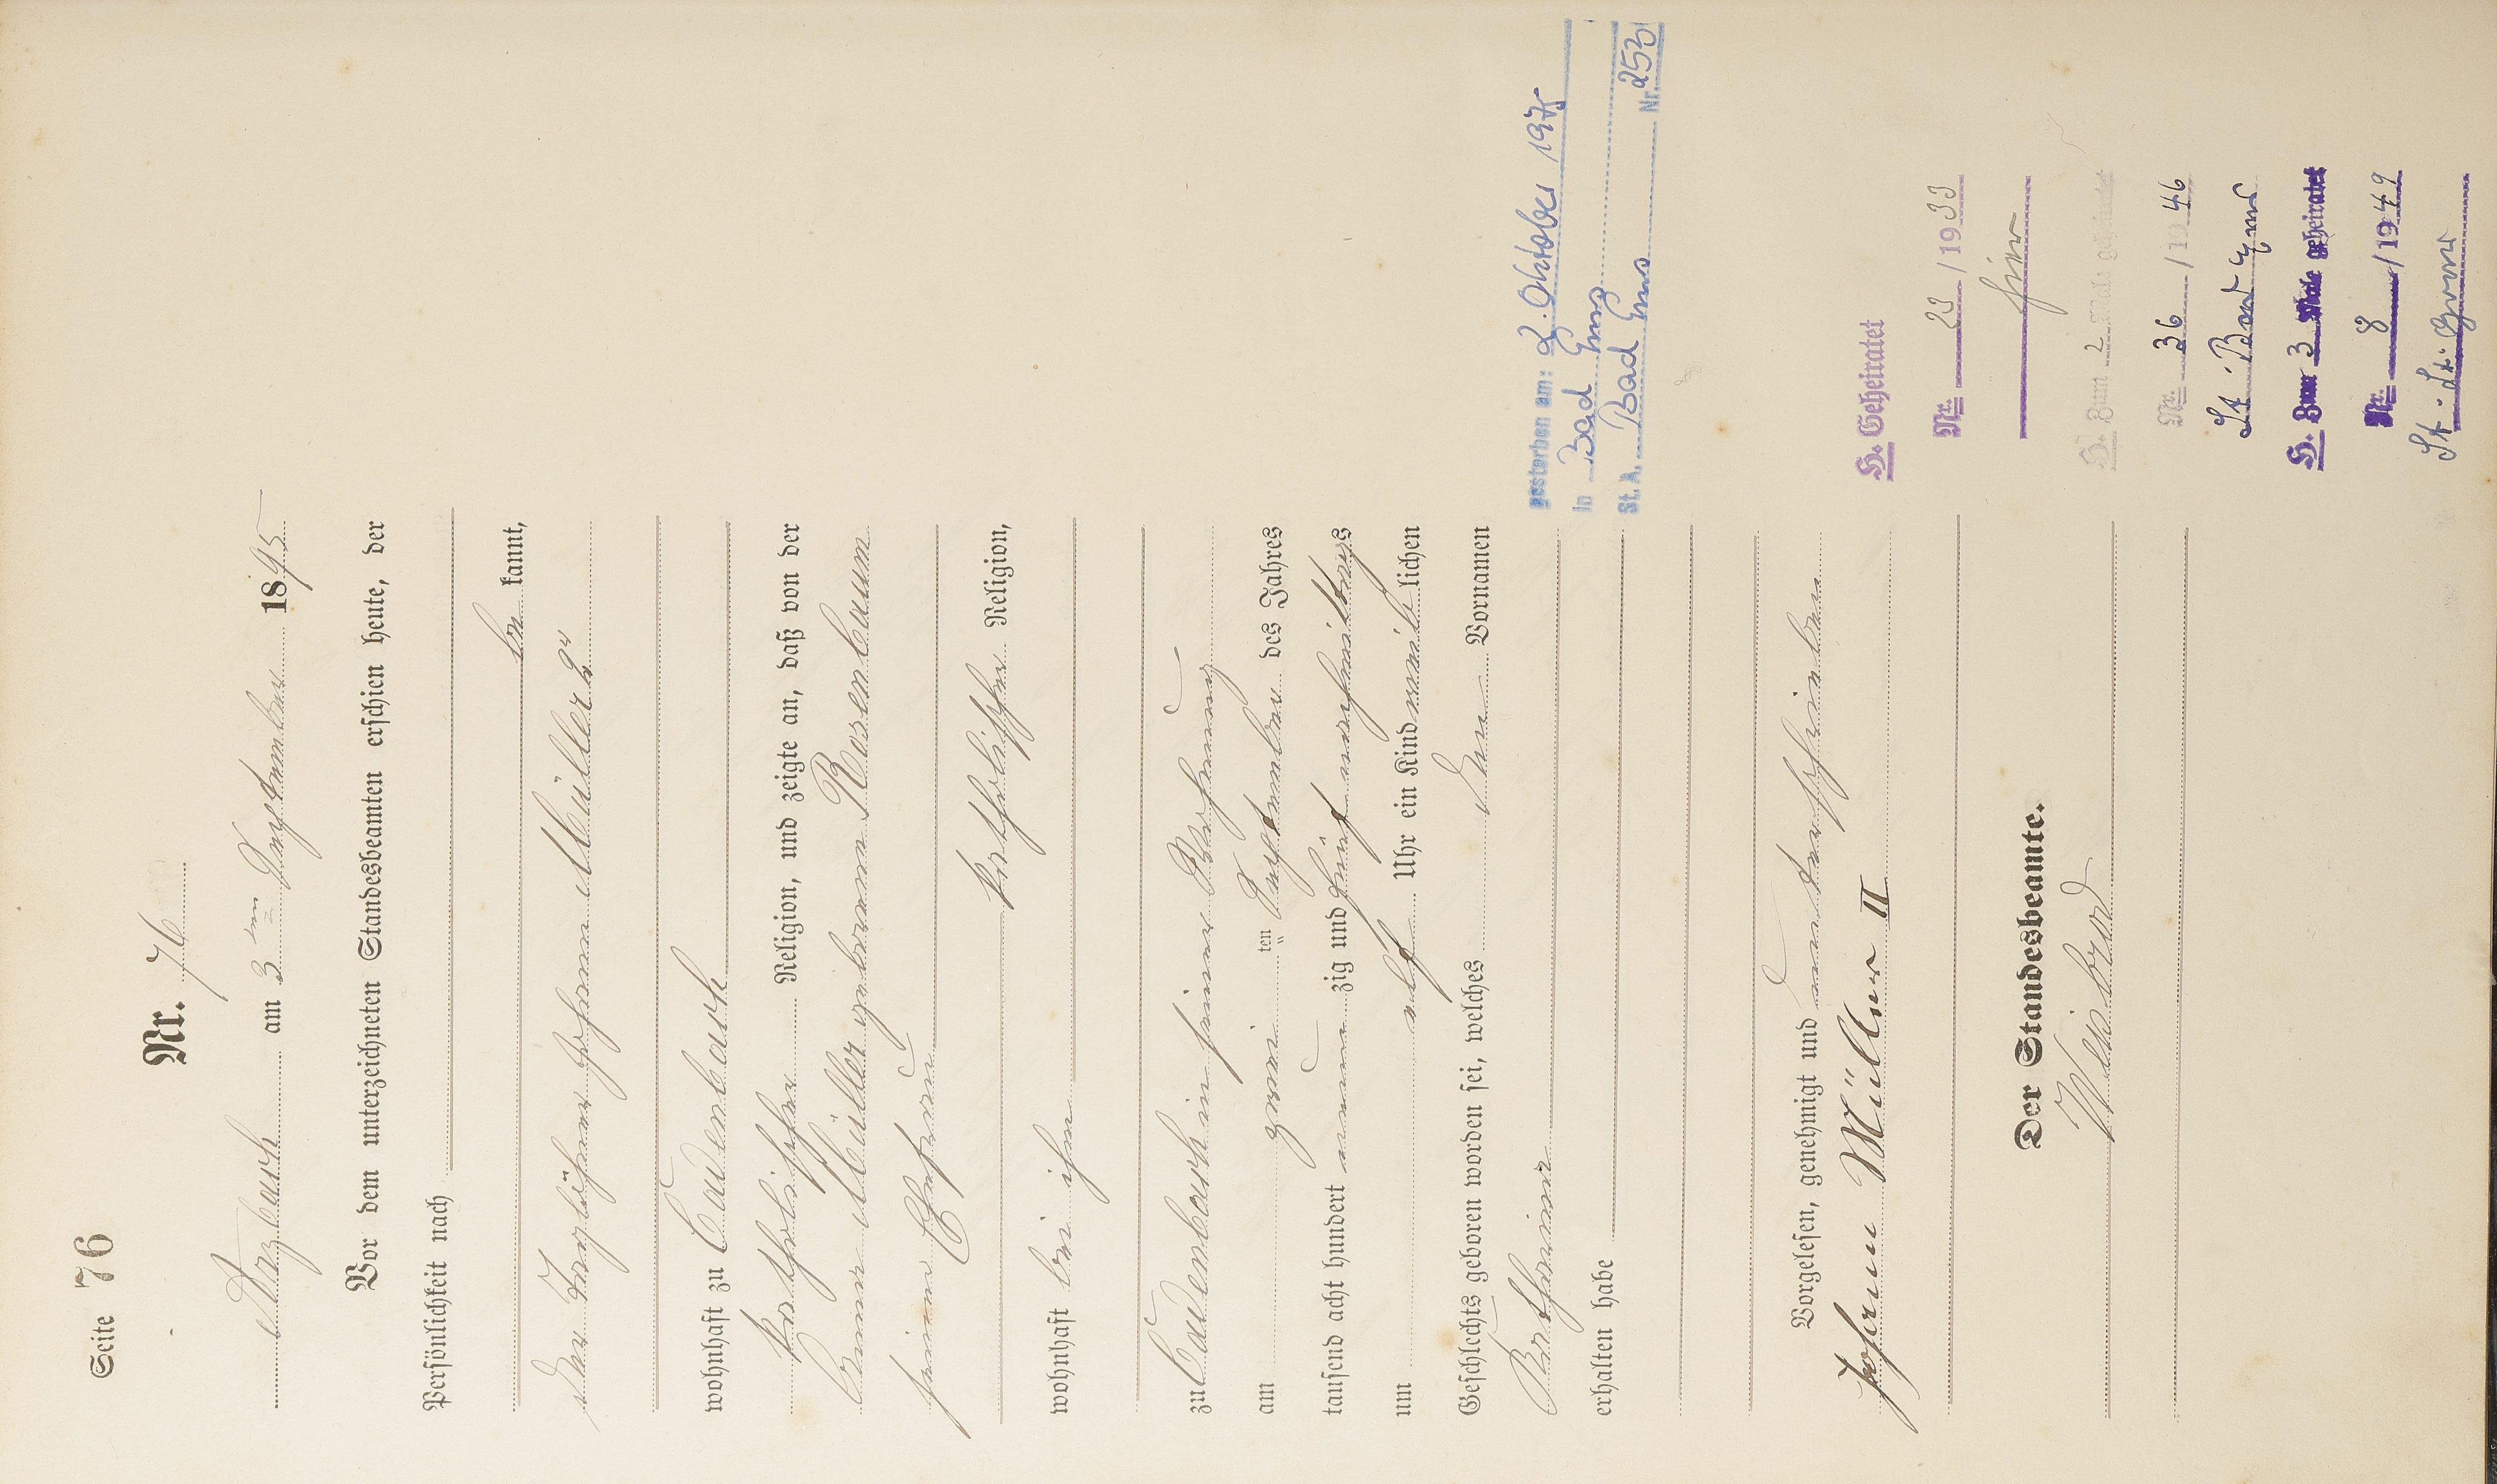 Seite 76
Nr. 76
Arzbach am 3ten September 1895
Vor dem unterzeichneten Standesbeamten erschien heute, der
Persönlichkeit nach
be kannt,
der Taglöhner Johann Müller 2r
wohnhaft zu Cadenbach
katholischer Religion, und zeigte an, daß von der
Anna Müller geborene Rosenbaum
seiner Ehefrau
katholischer Religion,
wohnhaft bei ihm
zu Cadenbach in seiner Wohnung
am zwei ten September des Jahres
tausend acht hundert neun zig und fünf nachmittags
um elf Uhr ein Kind männlichen
Geschlechts geboren worden sei, welches den Vornamen
erhalten habe
Vorgelesen, genehmigt und unterschrieben
Johann Müller II
Der Standesbeamte.
gestorben am: 2. Oktober 1975
in Bad Ems
St. A. Bad Ems Nr. 253
H. Geheiratet
Nr. 23 / 1933
hier
H. Zum 2 Male geheiratet
Nr. 36 / 1946
St. Bad Ems
H. Zum 3 Male geheiratet
Nr. 8 / 1949